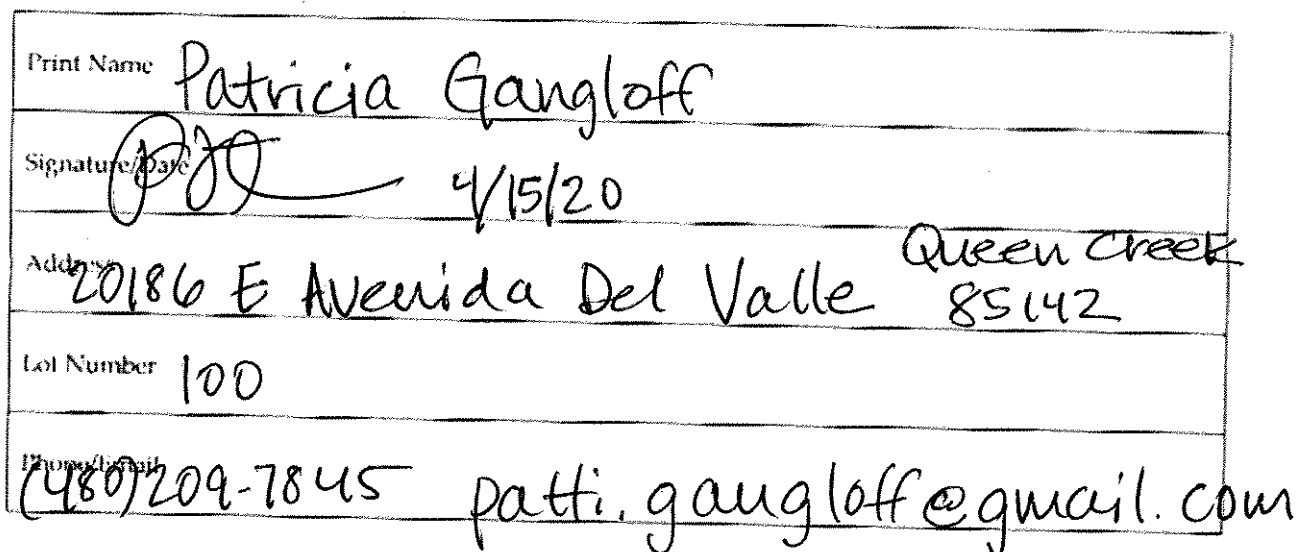 Print Name Patricia Gangloff
Signature/Date 4/15/20
Address 20186 E Avenida Del Valle Queen Creek
85142
Lot Number 100
Phone/Email
(480)209-7845 patti.gangloff@gmail.com